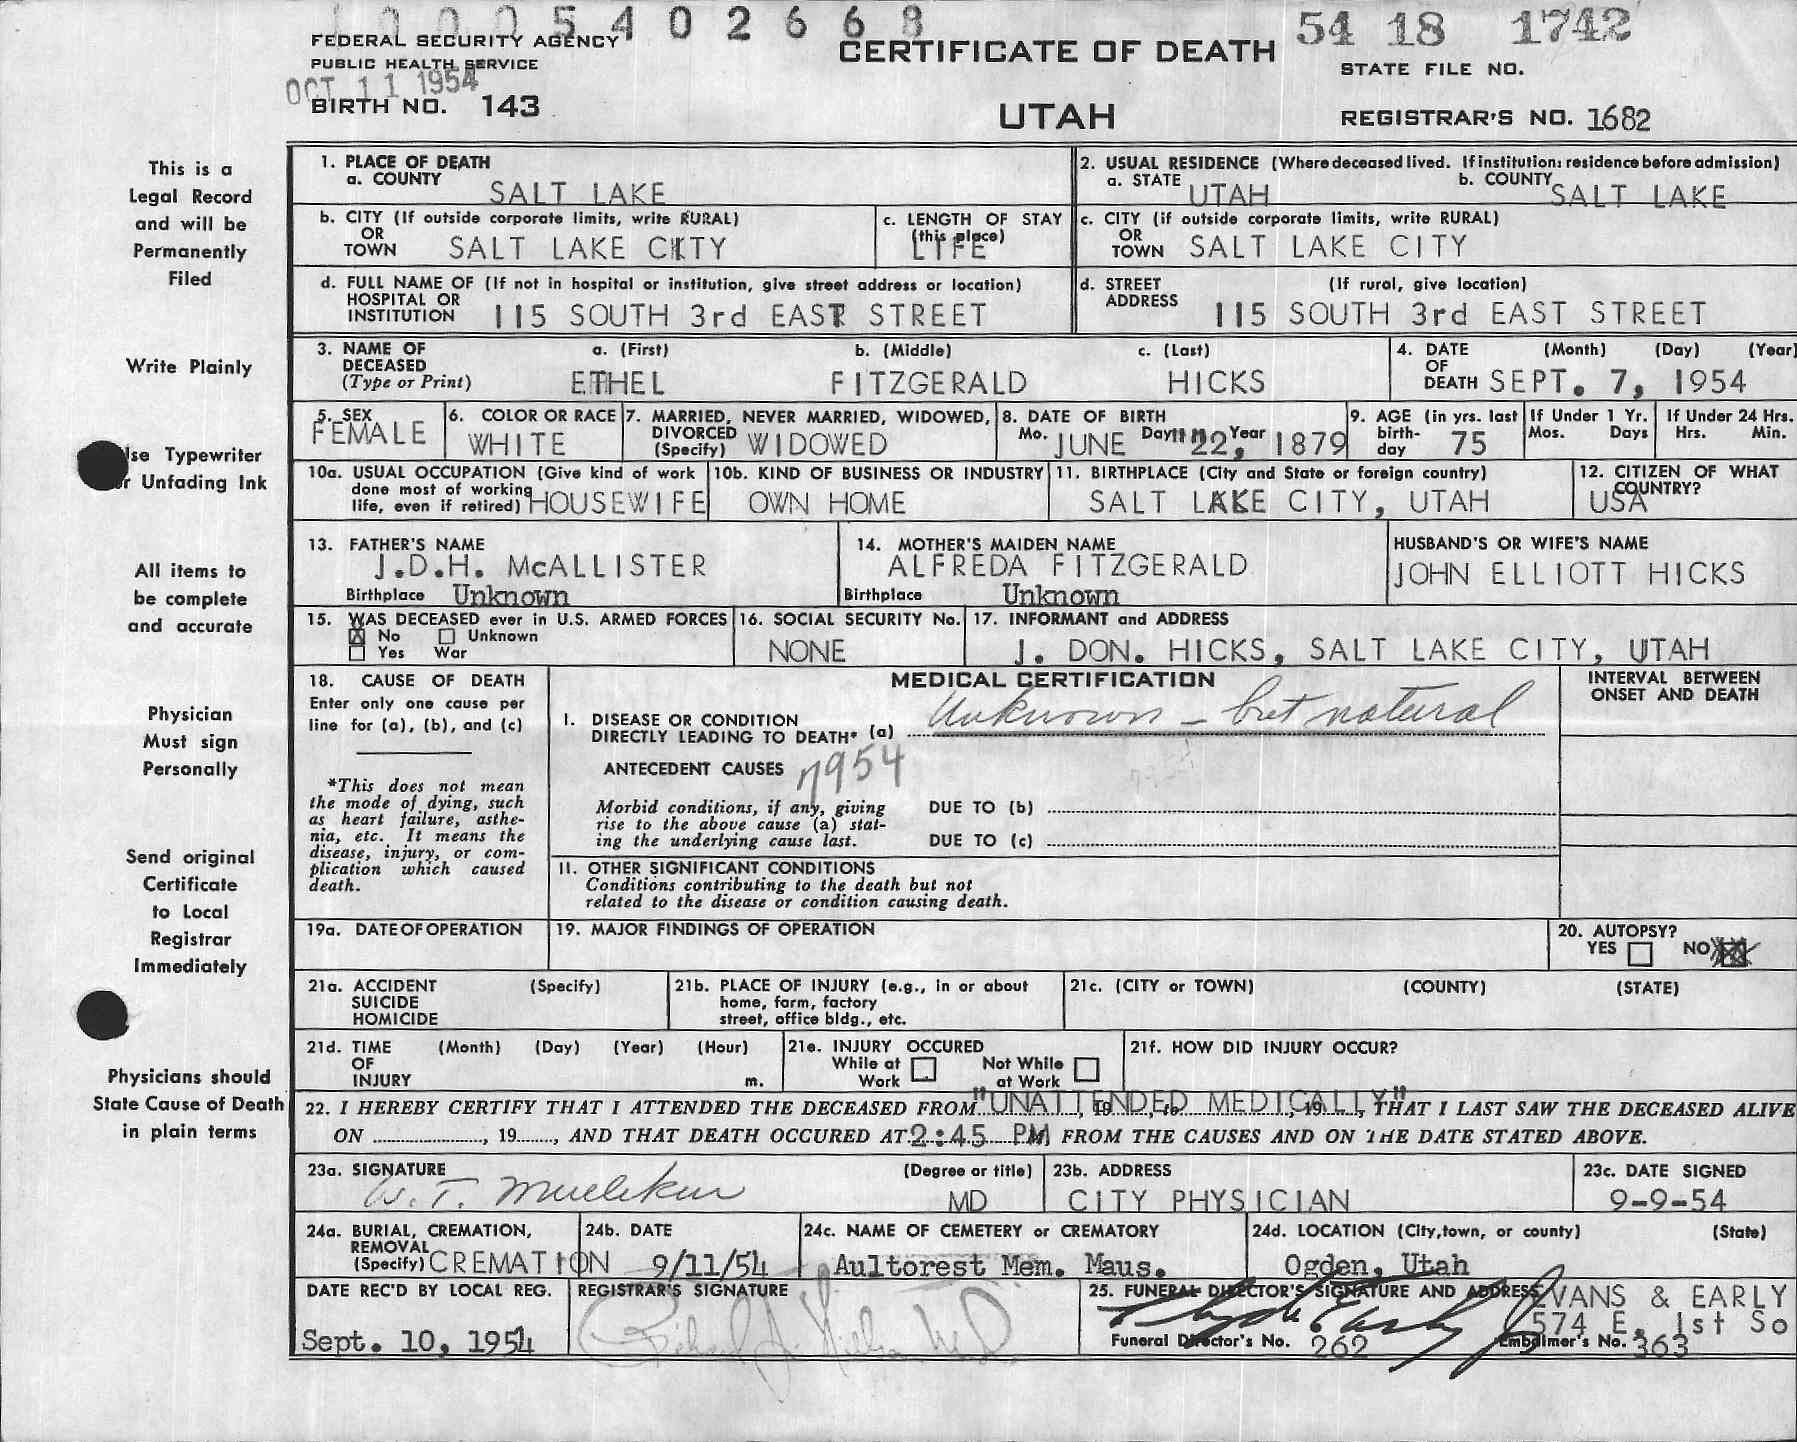 1 0 0 0 5 4 0 2 6 6 8
54 18 1742
FEDERAL SECURITY AGENCY
PUBLIC HEALTH SERVICE
CERTIFICATE OF DEATH
STATE FILE NO.
OCT 11 1954
BIRTH NO. 143
UTAH
REGISTRAR'S NO. 1682
This is a
Legal Record
and will be
Permanently
Filed
Write Plainly
Use Typewriter
or Unfading Ink
All items to
be complete
and accurate
Physician
Must sign
Personally
Send original
Certificate
to Local
Registrar
Immediately
Physicians should
State Cause of Death
in plain terms
1. PLACE OF DEATH
a. COUNTY SALT LAKE
2. USUAL RESIDENCE (Where deceased lived. If institution: residence before admission)
a. STATE UTAH b. COUNTY SALT LAKE
b. CITY (If outside corporate limits, write RURAL)
OR
TOWN SALT LAKE CITY
c. LENGTH OF STAY
(this place)
LIFE
c. CITY (if outside corporate limits, write RURAL)
OR
TOWN SALT LAKE CITY
d. FULL NAME OF (If not in hospital or institution, give street address or location)
HOSPITAL OR
INSTITUTION 115 SOUTH 3rd EAST STREET
d. STREET (If rural, give location)
ADDRESS 115 SOUTH 3rd EAST STREET
3. NAME OF a. (First) b. (Middle) c. (Last)
DECEASED
(Type or Print) ETHEL FITZGERALD HICKS
4. DATE (Month) (Day) (Year)
OF
DEATH SEPT. 7, 1954
5. SEX
FEMALE
6. COLOR OR RACE
WHITE
7. MARRIED, NEVER MARRIED, WIDOWED,
DIVORCED
(Specify) WIDOWED
8. DATE OF BIRTH
Mo. JUNE Day 22, Year 1879
9. AGE (in yrs. last
birth-
day 75
If Under 1 Yr.
Mos. Days
If Under 24 Hrs.
Hrs. Min.
10a. USUAL OCCUPATION (Give kind of work
done most of working
life, even if retired) HOUSEWIFE
10b. KIND OF BUSINESS OR INDUSTRY
OWN HOME
11. BIRTHPLACE (City and State or foreign country)
SALT LAKE CITY, UTAH
12. CITIZEN OF WHAT
COUNTRY?
USA
13. FATHER'S NAME
J.D.H. McALLISTER
Birthplace Unknown
14. MOTHER'S MAIDEN NAME
ALFREDA FITZGERALD
Birthplace Unknown
HUSBAND'S OR WIFE'S NAME
JOHN ELLIOTT HICKS
15. WAS DECEASED ever in U.S. ARMED FORCES
No Unknown
Yes War
16. SOCIAL SECURITY No.
NONE
17. INFORMANT and ADDRESS
J. DON. HICKS, SALT LAKE CITY, UTAH
18. CAUSE OF DEATH
Enter only one cause per
line for (a), (b), and (c)
*This does not mean
the mode of dying, such
as heart failure, asthe-
nia, etc. It means the
disease, injury, or com-
plication which caused
death.
MEDICAL CERTIFICATION
I. DISEASE OR CONDITION
DIRECTLY LEADING TO DEATH* (a) Unknown - but natural
ANTECEDENT CAUSES 7954
Morbid conditions, if any, giving
rise to the above cause (a) stat-
ing the underlying cause last.
DUE TO (b)
DUE TO (c)
II. OTHER SIGNIFICANT CONDITIONS
Conditions contributing to the death but not
related to the disease or condition causing death.
INTERVAL BETWEEN
ONSET AND DEATH
19a. DATE OF OPERATION
19. MAJOR FINDINGS OF OPERATION
20. AUTOPSY?
YES NO
21a. ACCIDENT (Specify)
SUICIDE
HOMICIDE
21b. PLACE OF INJURY (e.g., in or about
home, farm, factory
street, office bldg., etc.
21c. (CITY or TOWN) (COUNTY) (STATE)
21d. TIME (Month) (Day) (Year) (Hour)
OF
INJURY m.
21e. INJURY OCCURED
While at Not While
Work at Work
21f. HOW DID INJURY OCCUR?
22. I HEREBY CERTIFY THAT I ATTENDED THE DECEASED FROM "UNATTENDED MEDICALLY", 19, to, 19, THAT I LAST SAW THE DECEASED ALIVE
ON, 19, AND THAT DEATH OCCURED AT 2:45 PM FROM THE CAUSES AND ON THE DATE STATED ABOVE.
23a. SIGNATURE (Degree or title)
W. T. MD
23b. ADDRESS
CITY PHYSICIAN
23c. DATE SIGNED
9-9-54
24a. BURIAL, CREMATION,
REMOVAL
(Specify) CREMATION
24b. DATE
9/11/54
24c. NAME OF CEMETERY or CREMATORY
Aultorest Mem. Maus.
24d. LOCATION (City, town, or county) (State)
Ogden, Utah
DATE REC'D BY LOCAL REG.
Sept. 10, 1954
REGISTRAR'S SIGNATURE
25. FUNERAL DIRECTOR'S SIGNATURE AND ADDRESS EVANS & EARLY
574 E. 1st So
Funeral Director's No. 262 Embalmer's No. 363